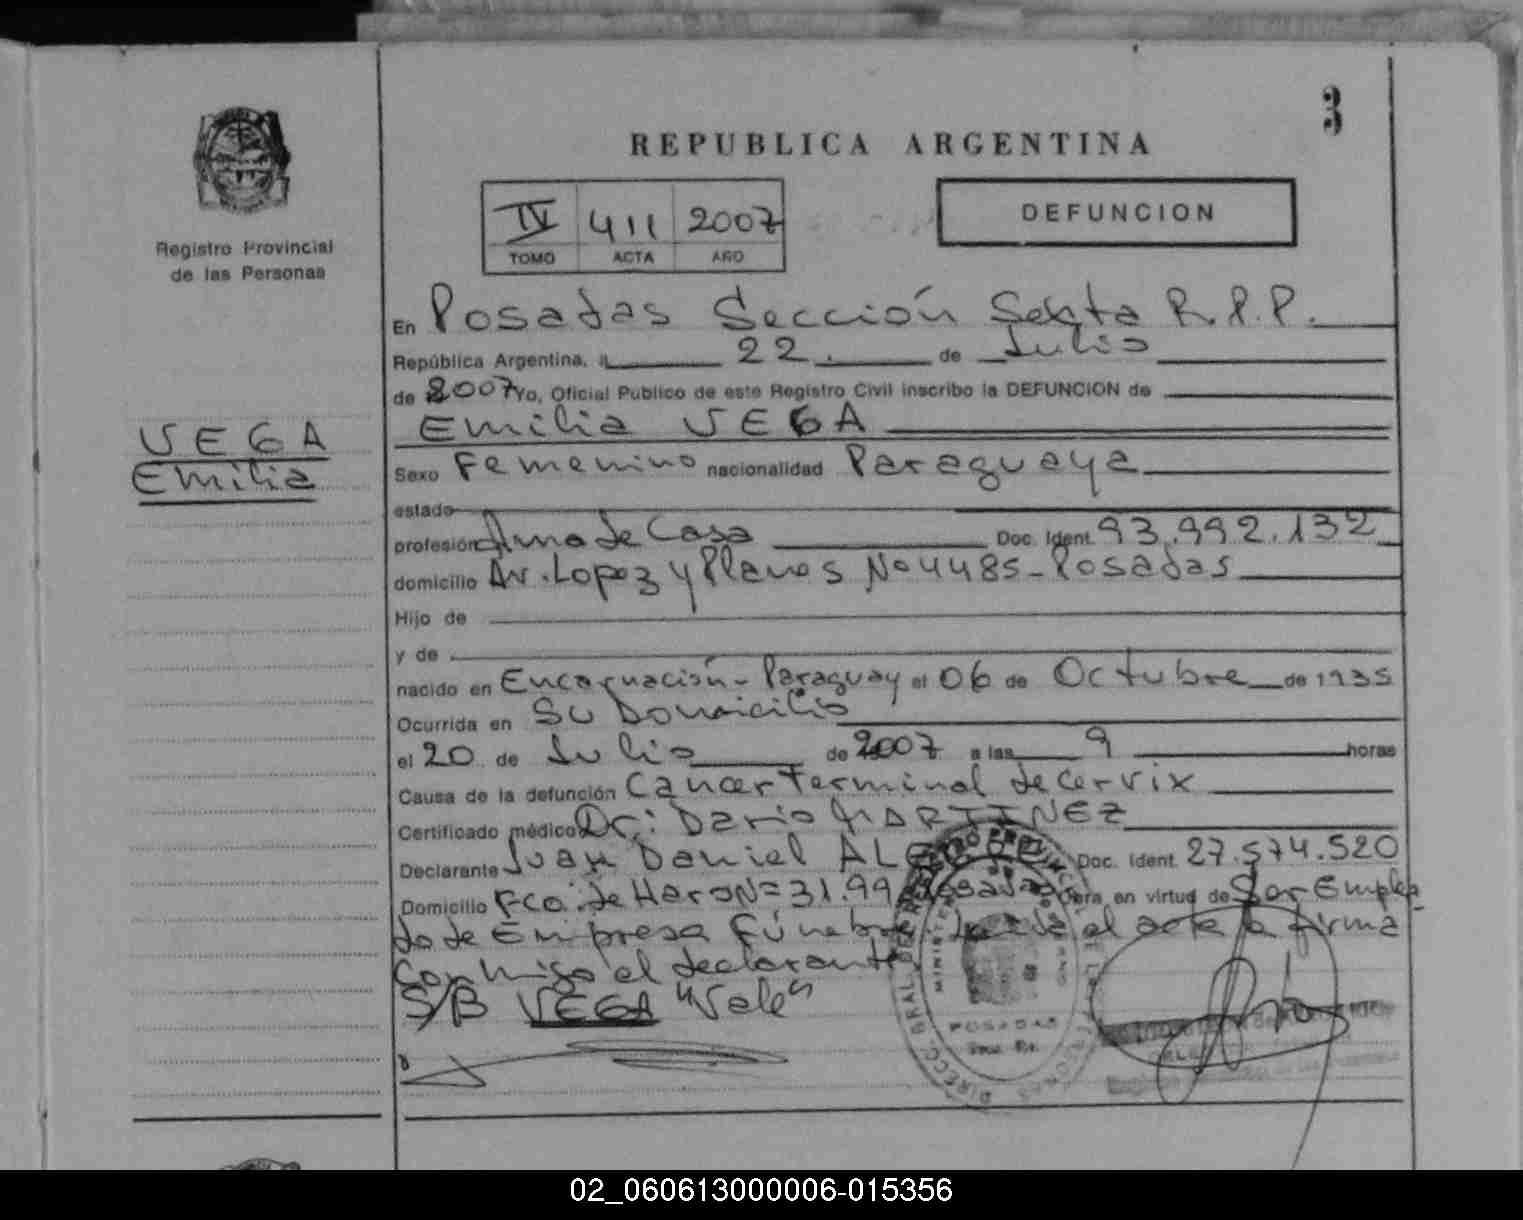 3
REPUBLICA ARGENTINA
IV 411 2007
TOMO ACTA AÑO
DEFUNCION
Registro Provincial
de las Personas
En Posadas Sección Sexta R.P.P.
República Argentina, a 22. de Julio
de 2007 Yo, Oficial Público de este Registro Civil inscribo la DEFUNCION de
Emilia VEGA
VEGA
Emilia
Sexo Femenino nacionalidad Paraguaya
estado
profesión Ama de Casa Doc. Ident. 93.992.132
domicilio Av. Lopez y Planes No 4485-Posadas
Hijo de
y de
nacido en Encarnación-Paraguay el 06 de Octubre de 1935
Ocurrida en Su Domicilio
el 20 de Julio de 2007 a las 9 horas
Causa de la defunción Cancer Terminal de Cervix
Certificado médico Dr.: Dario MARTINEZ
Declarante Juan Daniel Doc. Ident. 27.574.520
Domicilio Fco. de Haro Nº 31.99 Posadas Obra en virtud de Ser Emplea
do de Empresa Fúnebre. Leída el acta la firma
conmigo el declarante
S/B VEGA "Vale"
POSADAS
02_060613000006-015356